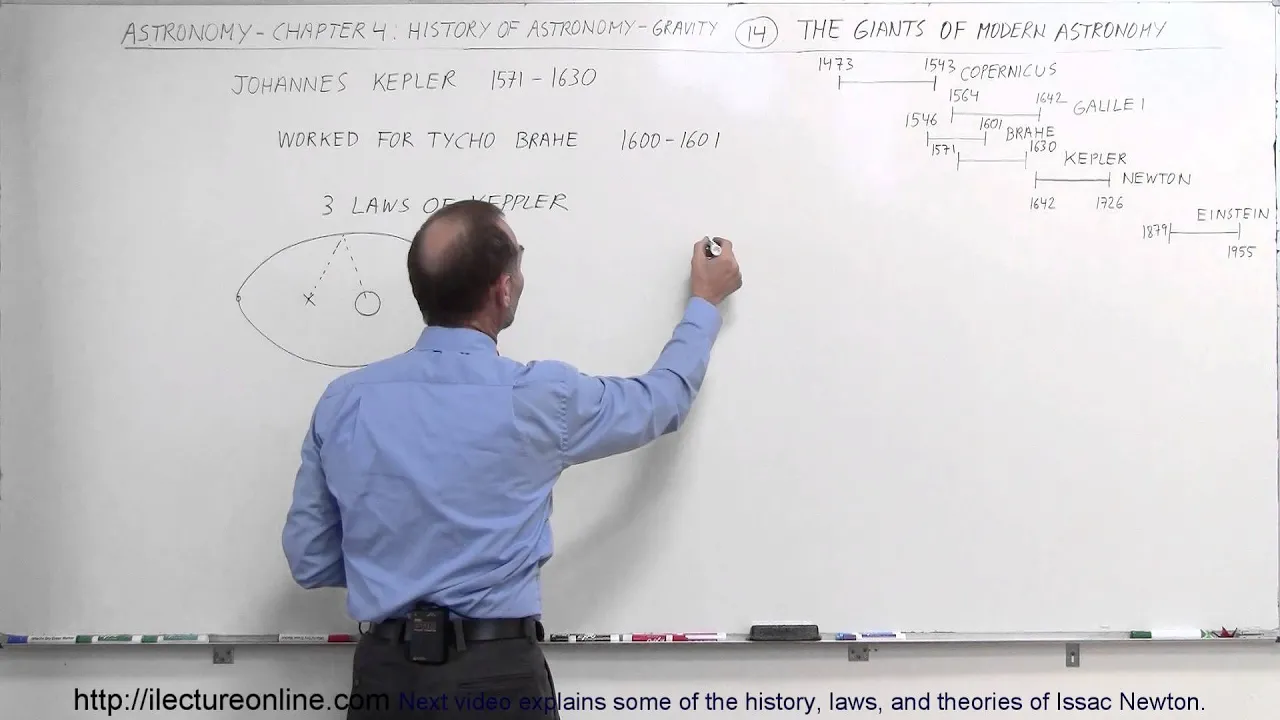 ASTRONOMY - CHAPTER 4: HISTORY OF ASTRONOMY - GRAVITY 14 THE GIANTS OF MODERN ASTRONOMY
JOHANNES KEPLER 1571 - 1630
WORKED FOR TYCHO BRAHE 1600 - 1601
3 LAWS OF KEPPLER
1473 1543 COPERNICUS
1564 1642 GALILEI
1546 1601 BRAHE
1571 1630 KEPLER
NEWTON
1642 1726
EINSTEIN
1879
1955
http://ilectureonline.com Next video explains some of the history, laws, and theories of Issac Newton.